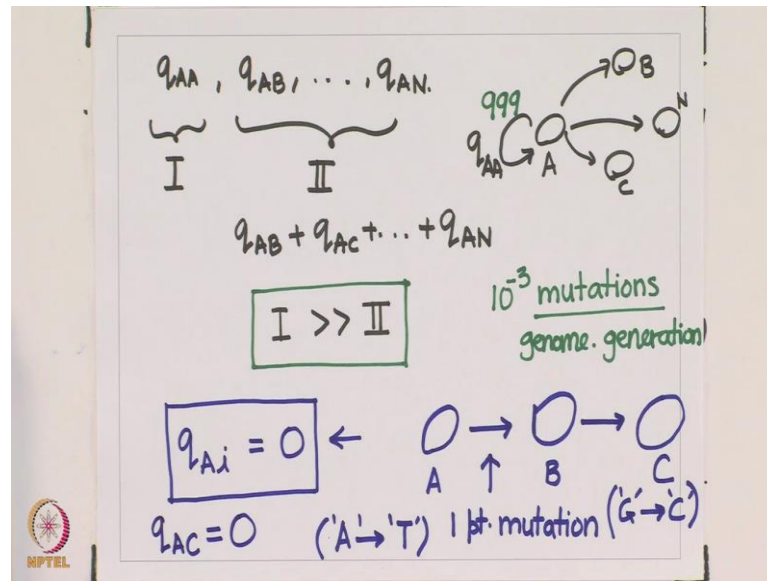 q_AA , q_AB, ...., q_AN.
I II
999
q_AA
A
B
N
C
q_AB + q_AC + ... + q_AN
I >> II
10^-3 mutations
genome. generation
q_Ai = 0 ← A → B → C
q_AC = 0 ('A'→'T') ↑ 1 pt. mutation ('G'→'C')
NPTEL